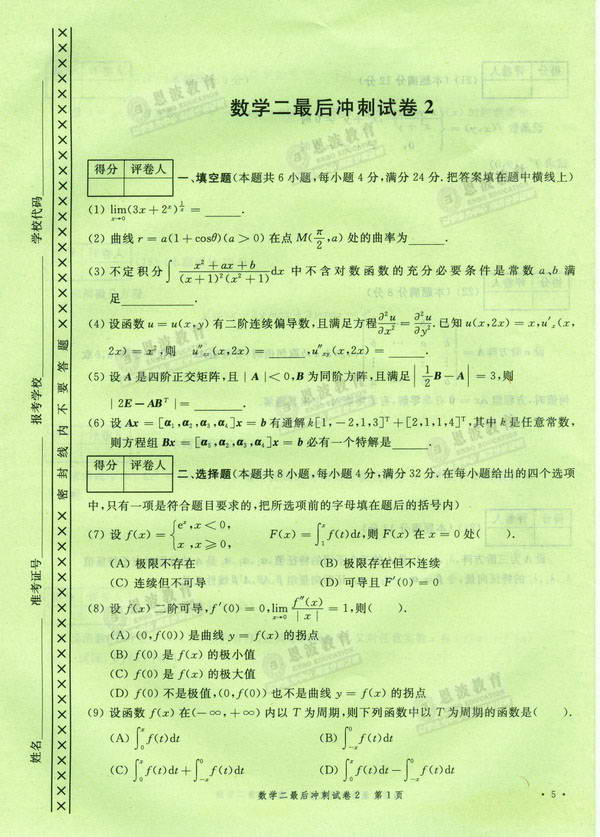 数学二最后冲刺试卷2
得分 评卷人
一、填空题(本题共6小题,每小题4分,满分24分.把答案填在题中横线上)
(1) lim_{x→0}(3x+2^x)^{1/x} = ______.
(2) 曲线 r=a(1+cosθ)(a>0) 在点 M(π/2,a) 处的曲率为______.
(3) 不定积分∫ (x²+ax+b)/((x+1)²(x²+1)) dx 中不含对数函数的充分必要条件是常数 a、b 满
足________.
(4) 设函数 u=u(x,y) 有二阶连续偏导数,且满足方程 ∂²u/∂x² = ∂²u/∂y². 已知 u(x,2x)=x,u′ₓ(x,
2x)=x²,则 u″ₓₓ(x,2x)=______,u″ₓᵧ(x,2x)=______.
(5) 设 A 是四阶正交矩阵,且 |A|<0,B 为同阶方阵,且满足 |1/2 B−A|=3,则
|2E−ABᵀ|=______.
(6) 设 Ax=[α₁,α₂,α₃,α₄]x=b 有通解 k[1,−2,1,3]ᵀ+[2,1,1,4]ᵀ,其中 k 是任意常数,
则方程组 Bx=[α₁,α₂,α₃,α₄]x=b 必有一个特解是______.
得分 评卷人
二、选择题(本题共8小题,每小题4分,满分32分.在每小题给出的四个选项
中,只有一项是符合题目要求的,把所选项前的字母填在题后的括号内)
(7) 设 f(x)={eˣ,x<0, x,x≥0, F(x)=∫₁ˣ f(t)dt,则 F(x) 在 x=0 处( ).
(A) 极限不存在 (B) 极限存在但不连续
(C) 连续但不可导 (D) 可导且 F′(0)=0
(8) 设 f(x) 二阶可导,f′(0)=0,lim_{x→0} f″(x)/|x| =1,则( ).
(A) (0,f(0)) 是曲线 y=f(x) 的拐点
(B) f(0) 是 f(x) 的极小值
(C) f(0) 是 f(x) 的极大值
(D) f(0) 不是极值,(0,f(0)) 也不是曲线 y=f(x) 的拐点
(9) 设函数 f(x) 在(−∞,+∞) 内以 T 为周期,则下列函数中以 T 为周期的函数是( ).
(A) ∫₀ˣ f(t)dt (B) ∫₋ₓ⁰ f(t)dt
(C) ∫₀ˣ f(t)dt+∫₋ₓ⁰ f(t)dt (D) ∫₀ˣ f(t)dt−∫₋ₓ⁰ f(t)dt
数学二最后冲刺试卷2 第1页
· 5 ·
学校代码
报考学校
准考证号
姓名
密封线内不要答题
恩波教育